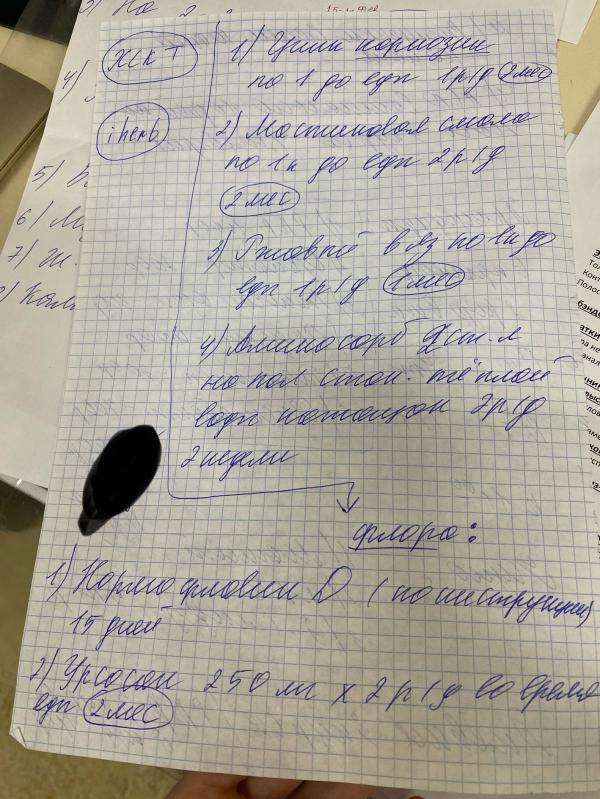 ЖКТ
iherb
1) Цинк карнозин
по 1 до еды 1 р/д 2 мес
2) Мастиковая смола
по 1 к до еды 2 р/д
2 мес
3) вяз по до
еды 1 р/д 1 мес
4) Аминосорб 2 ст. л
на пол стак. тёплой
воды натощак 2 р/д
2 недели
флора:
1) Нормофлорин D (по инструкции)
15 дней
2) Урсосан 250 мг х 2 р/д во время
еды 2 мес
3) На
4)
5)
6)
7)
15-